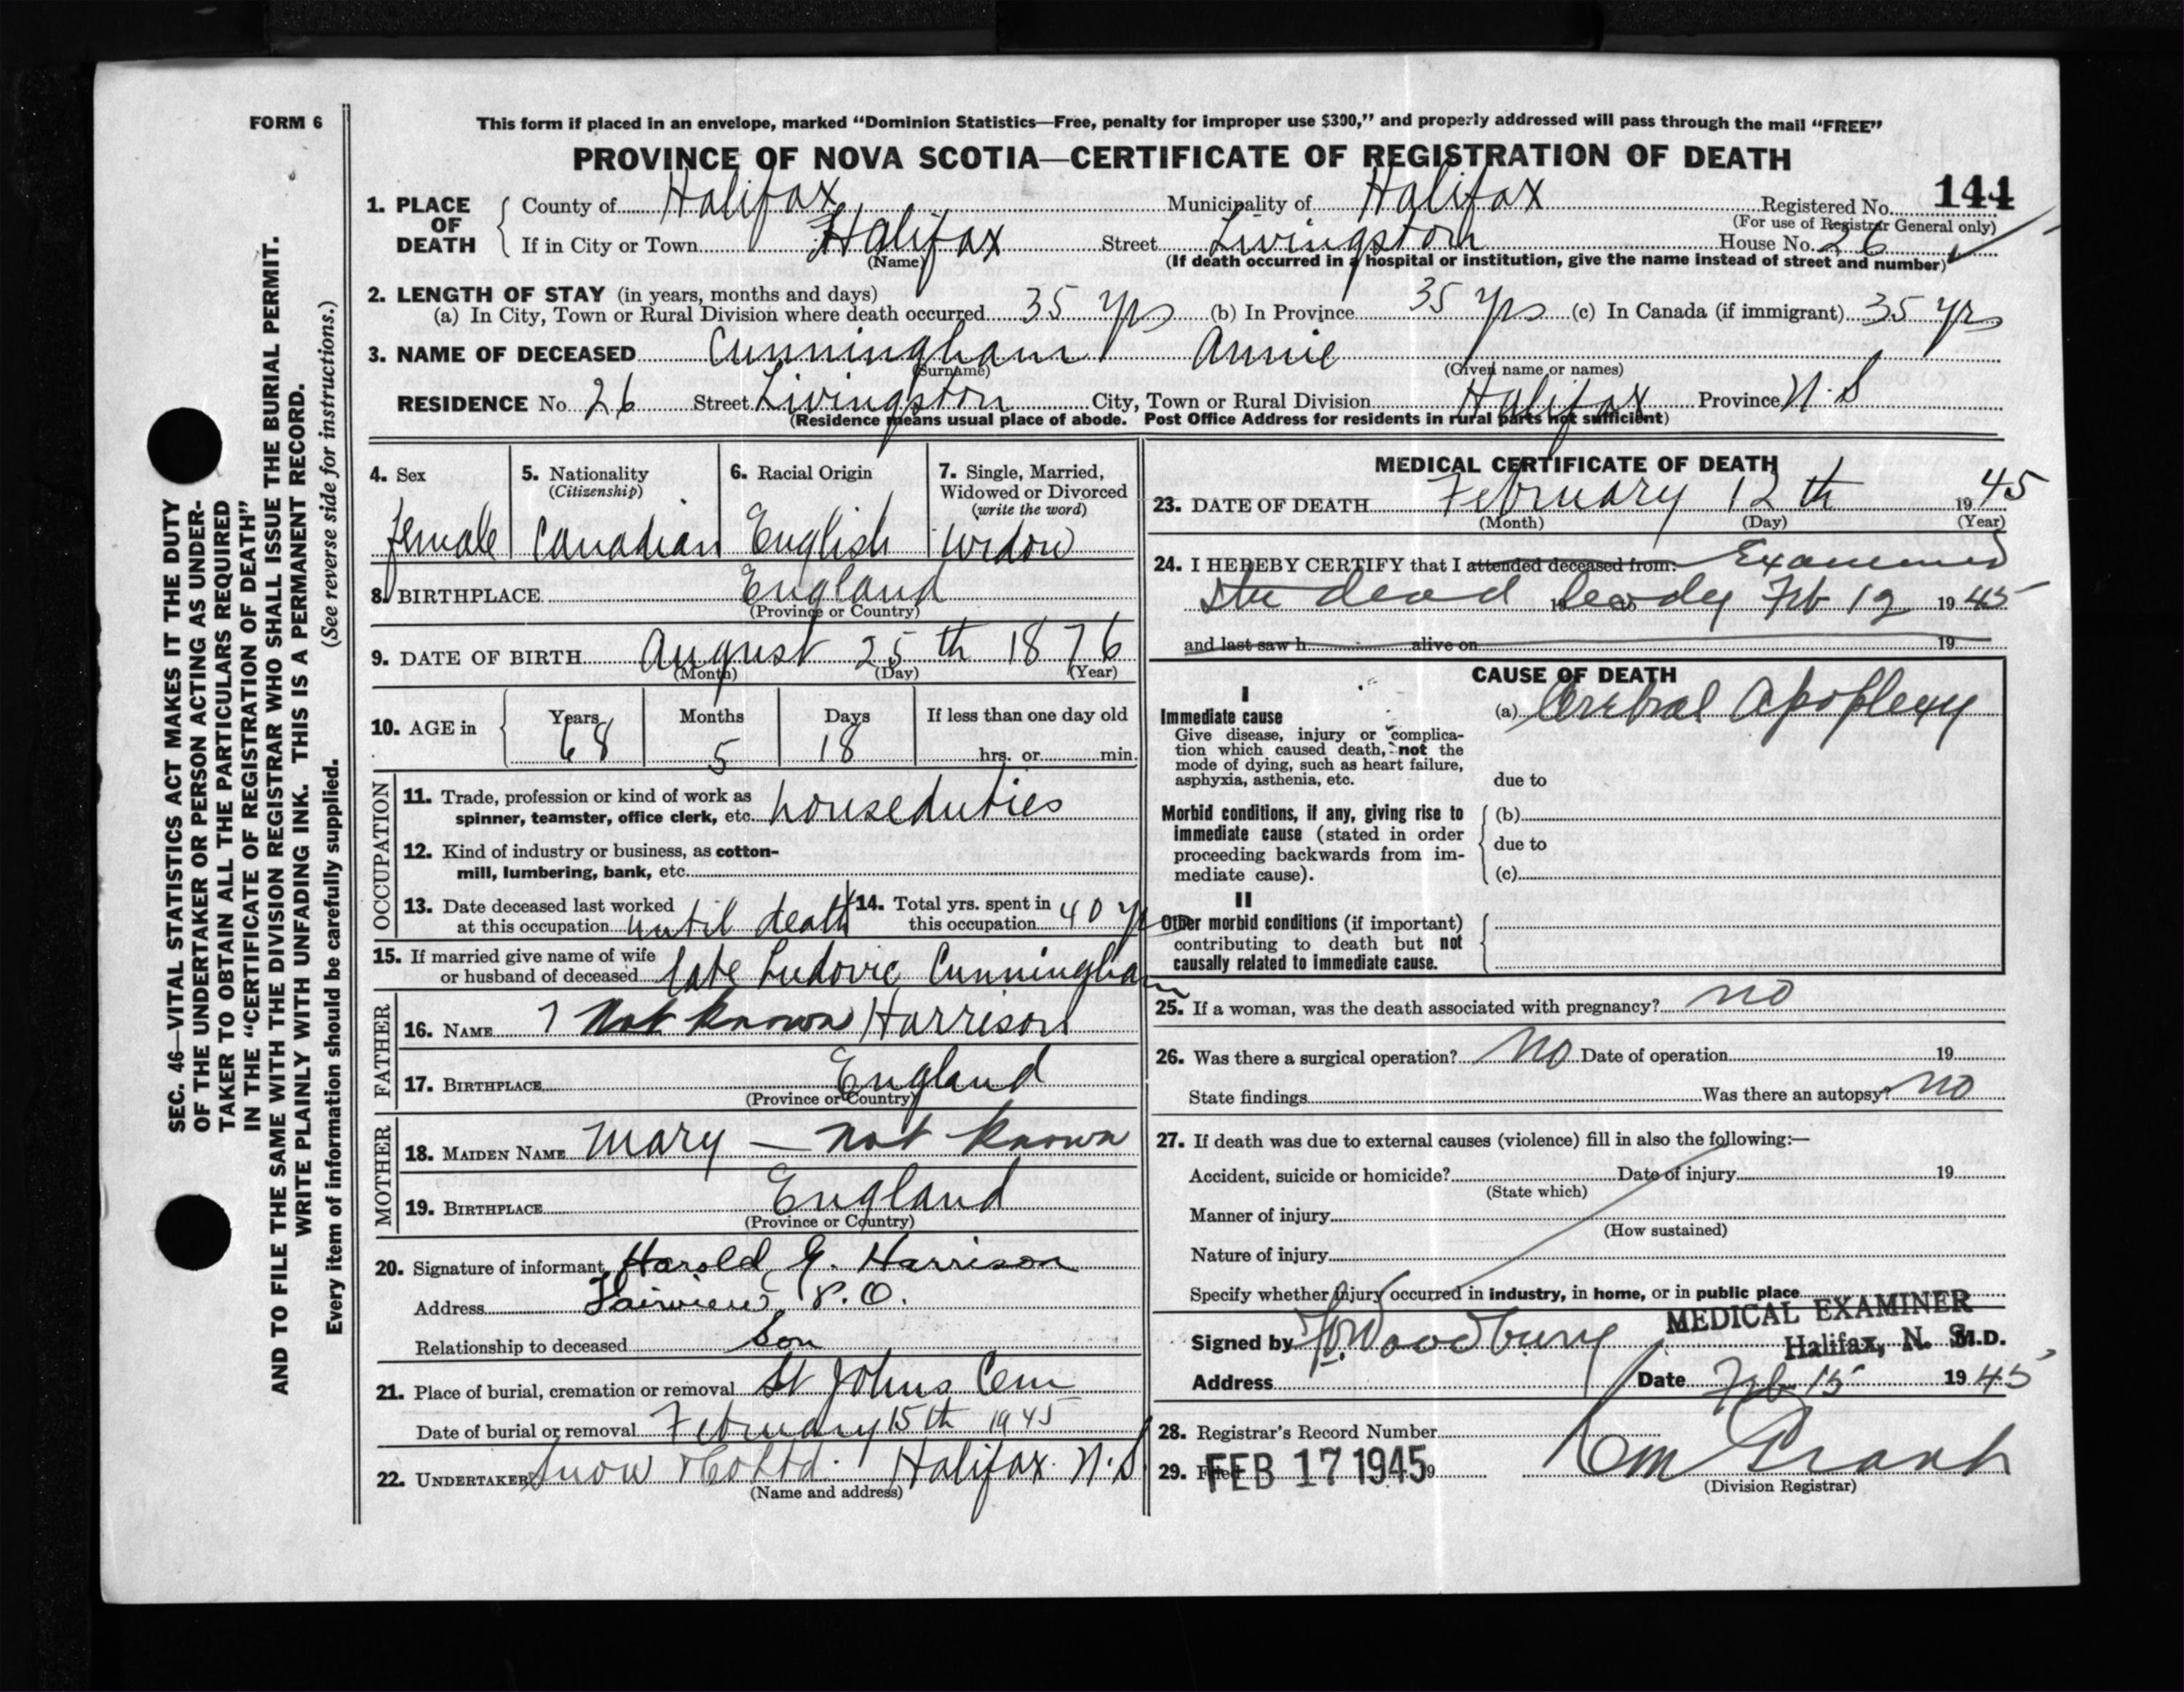 FORM 6
This form if placed in an envelope, marked "Dominion Statistics—Free, penalty for improper use $300," and properly addressed will pass through the mail "FREE"
PROVINCE OF NOVA SCOTIA—CERTIFICATE OF REGISTRATION OF DEATH
1. PLACE OF DEATH
County of Halifax Municipality of Halifax Registered No. 144
(For use of Registrar General only)
If in City or Town Halifax Street Livingston House No. 26
(Name) (If death occurred in a hospital or institution, give the name instead of street and number)
2. LENGTH OF STAY (in years, months and days)
(a) In City, Town or Rural Division where death occurred 35 yrs (b) In Province 35 yrs (c) In Canada (if immigrant) 35 yrs
3. NAME OF DECEASED Cunningham Annie
(Surname) (Given name or names)
RESIDENCE No. 26 Street Livingston City, Town or Rural Division Halifax Province N.S
(Residence means usual place of abode. Post Office Address for residents in rural parts not sufficient)
4. Sex
female
5. Nationality
(Citizenship)
Canadian
6. Racial Origin
English
7. Single, Married,
Widowed or Divorced
(write the word)
widow
8. BIRTHPLACE England
(Province or Country)
9. DATE OF BIRTH August 25th 1876
(Month) (Day) (Year)
10. AGE in
Years Months Days If less than one day old
68 5 18 hrs. or min.
OCCUPATION
11. Trade, profession or kind of work as
spinner, teamster, office clerk, etc. houseduties
12. Kind of industry or business, as cotton-
mill, lumbering, bank, etc.
13. Date deceased last worked
at this occupation until death
14. Total yrs. spent in
this occupation 40 yrs
15. If married give name of wife
or husband of deceased late Ludovic Cunningham
FATHER
16. NAME ? Not known Harrison
17. BIRTHPLACE England
(Province or Country)
MOTHER
18. MAIDEN NAME Mary — not known
19. BIRTHPLACE England
(Province or Country)
20. Signature of informant Harold G. Harrison
Address Fairview P.O.
Relationship to deceased Son
21. Place of burial, cremation or removal St Johns Cem
Date of burial or removal February 15th 1945
22. UNDERTAKER Snow & Co Ltd. Halifax. N.S.
(Name and address)
MEDICAL CERTIFICATE OF DEATH
23. DATE OF DEATH February 12th 1945
(Month) (Day) (Year)
24. I HEREBY CERTIFY that I attended deceased from: Examined
the dead body Feb 12 1945
and last saw h alive on 19
CAUSE OF DEATH
I
Immediate cause
Give disease, injury or complica-
tion which caused death, not the
mode of dying, such as heart failure,
asphyxia, asthenia, etc.
(a) Cerebral Apoplexy
due to
Morbid conditions, if any, giving rise to
immediate cause (stated in order
proceeding backwards from im-
mediate cause).
(b)
due to
(c)
II
Other morbid conditions (if important)
contributing to death but not
causally related to immediate cause.
25. If a woman, was the death associated with pregnancy? no
26. Was there a surgical operation? No Date of operation 19
State findings Was there an autopsy? no
27. If death was due to external causes (violence) fill in also the following:—
Accident, suicide or homicide? Date of injury 19
(State which)
Manner of injury
(How sustained)
Nature of injury
Specify whether injury occurred in industry, in home, or in public place
MEDICAL EXAMINER
Halifax, N. S.
Signed by Woodbury M.D.
Address Date Feb 15 1945
28. Registrar's Record Number
29. Filed FEB 17 1945 19
Grant
(Division Registrar)
SEC. 46—VITAL STATISTICS ACT MAKES IT THE DUTY
OF THE UNDERTAKER OR PERSON ACTING AS UNDER-
TAKER TO OBTAIN ALL THE PARTICULARS REQUIRED
IN THE "CERTIFICATE OF REGISTRATION OF DEATH"
AND TO FILE THE SAME WITH THE DIVISION REGISTRAR WHO SHALL ISSUE THE BURIAL PERMIT.
WRITE PLAINLY WITH UNFADING INK. THIS IS A PERMANENT RECORD.
Every item of information should be carefully supplied. (See reverse side for instructions.)